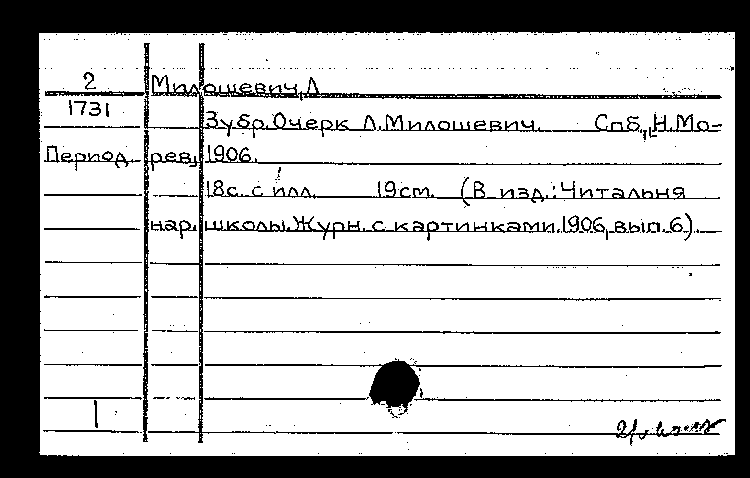 2 Милошевич, Л
1731
Зубр. Очерк Л. Милошевич. Спб., Н. Мо-
Период. рев, 1906.
18с. с илл. 19см. (В изд.: Читальня
нар. школы. Журн. с картинками. 1906, вып. 6).
1